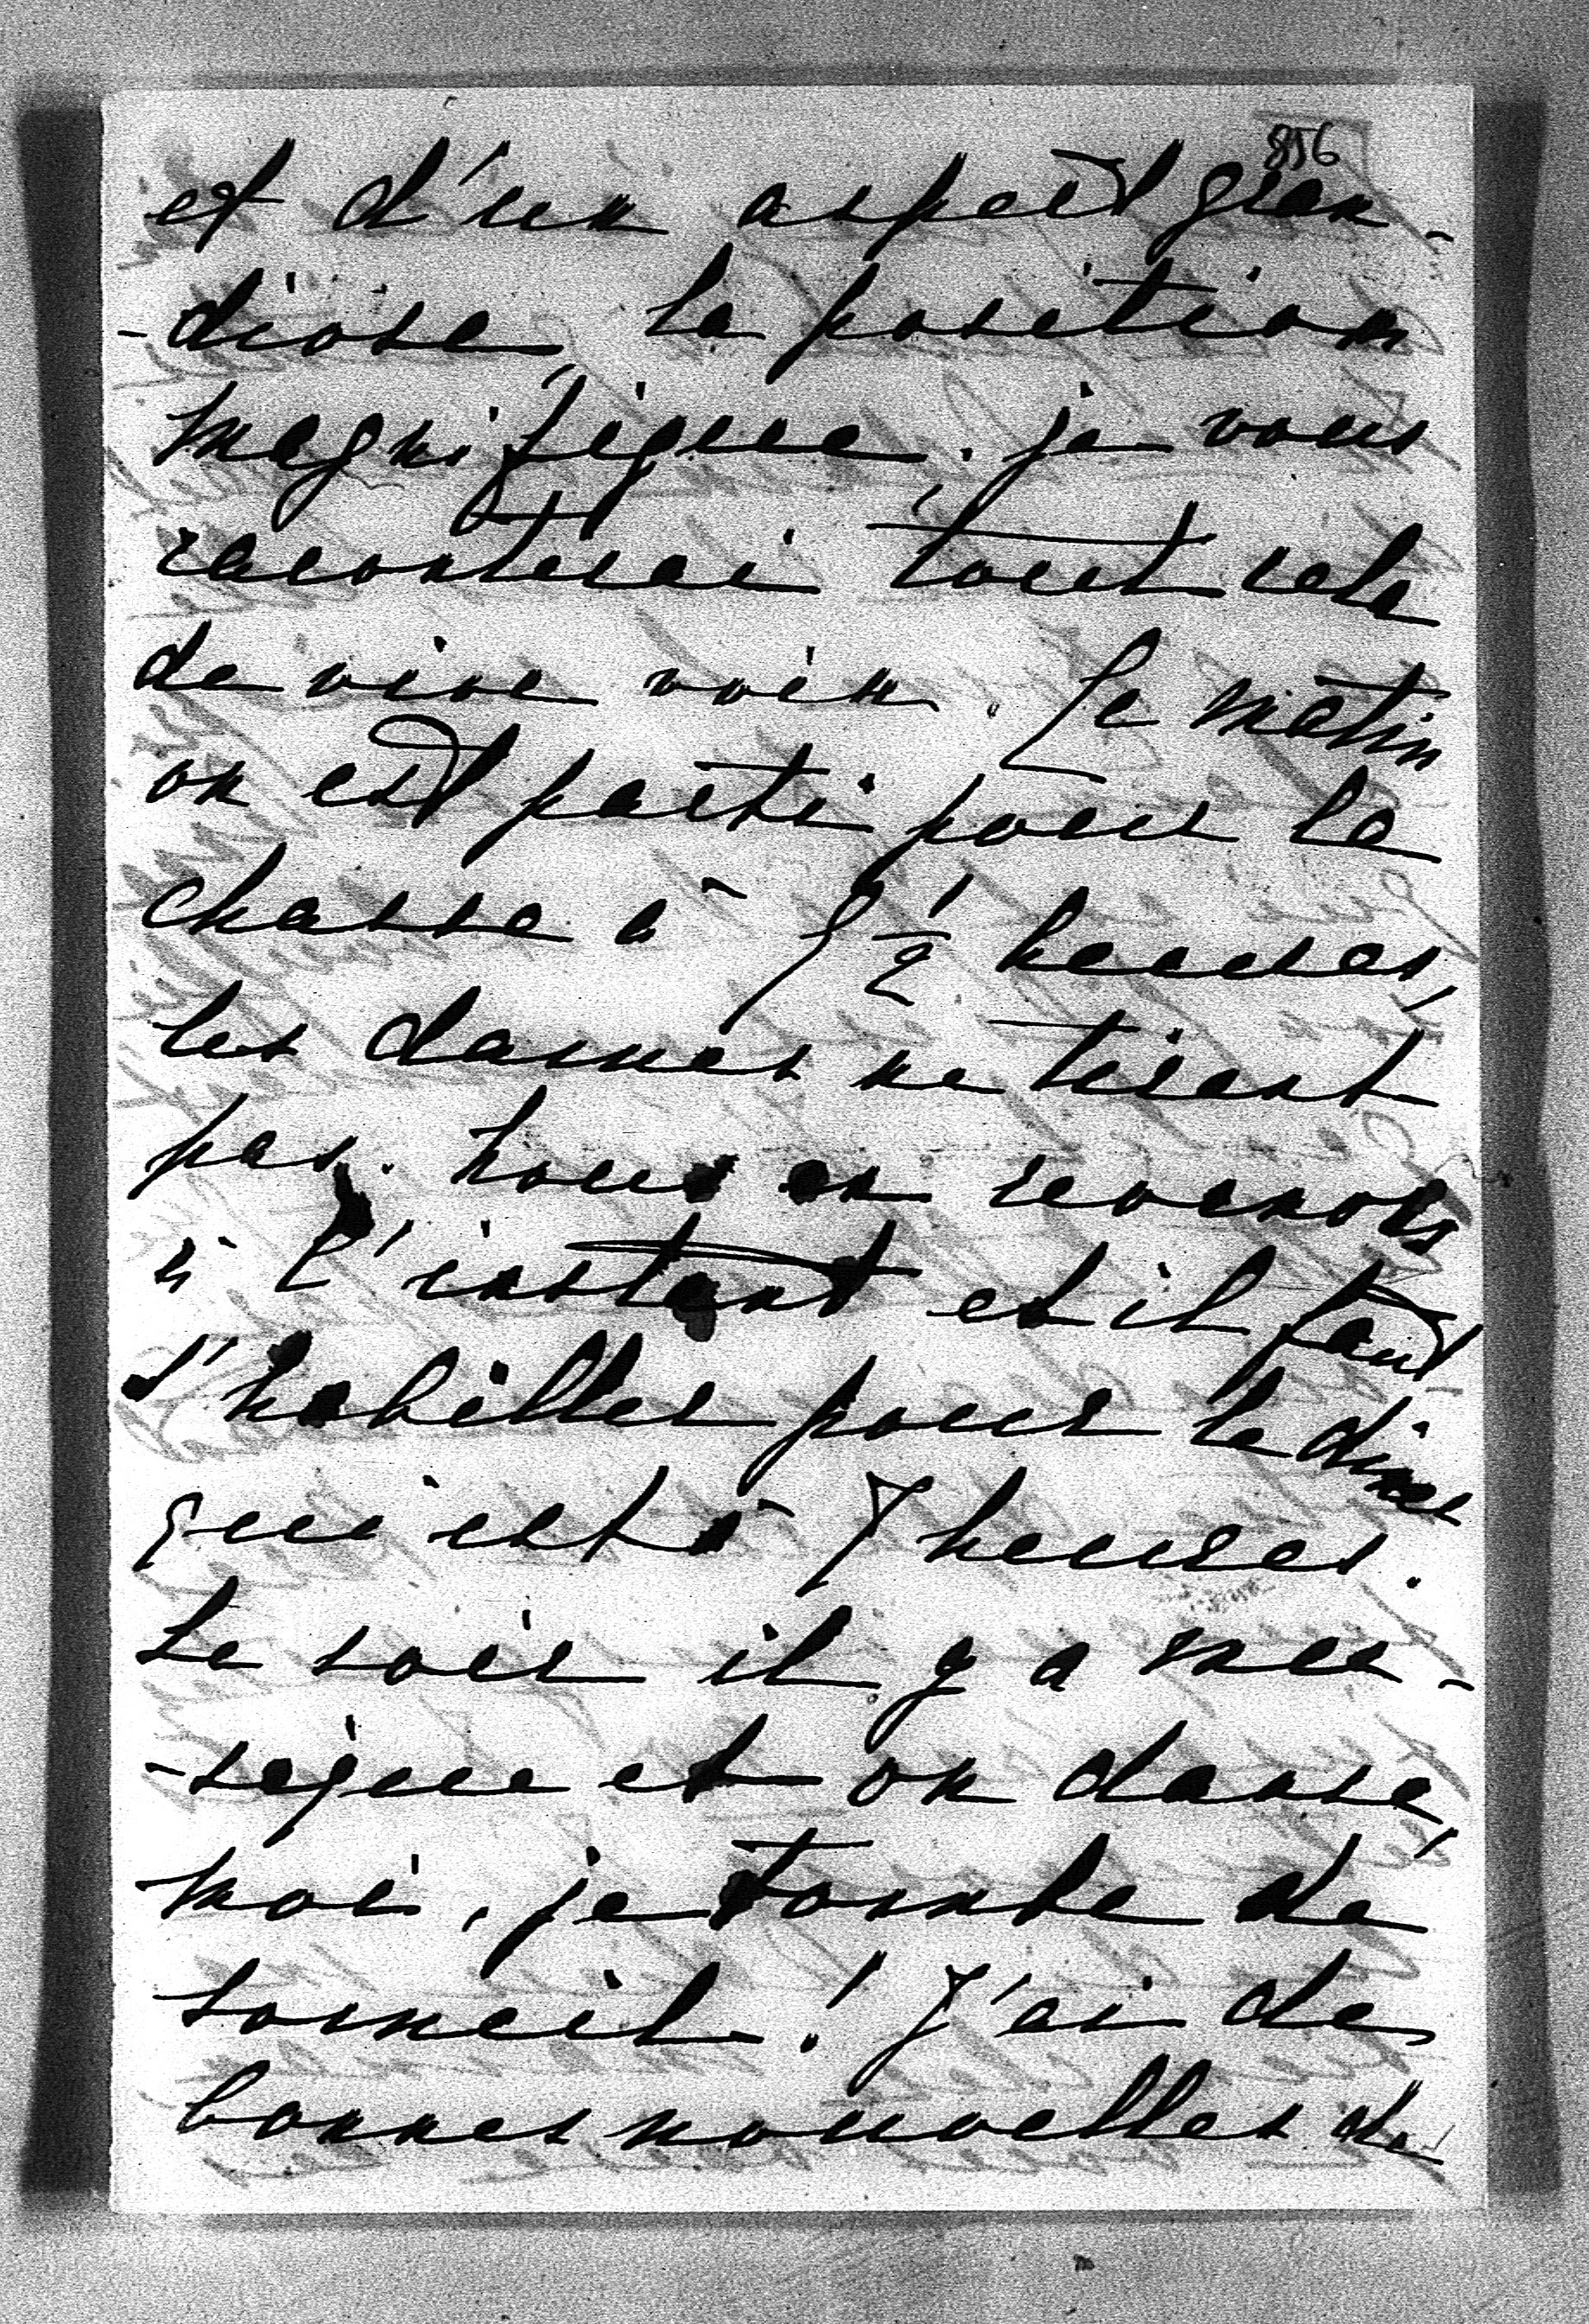 856
et d'un aspect gran-
-diose, la position
magnifique. je vous
raconterai tout cela
de vive voix. Le matin
on est parti pour la
chasse à 9 1/2 heures,
les dames ne tirent
pas. nous en revenons
à l'instant et il faut
s'habiller pour le diner
qui est à 7 heures.
Le soir il y a mu-
-sique et on danse,
moi, je tombe de
sommeil! J'ai de
bonnes nouvelles de